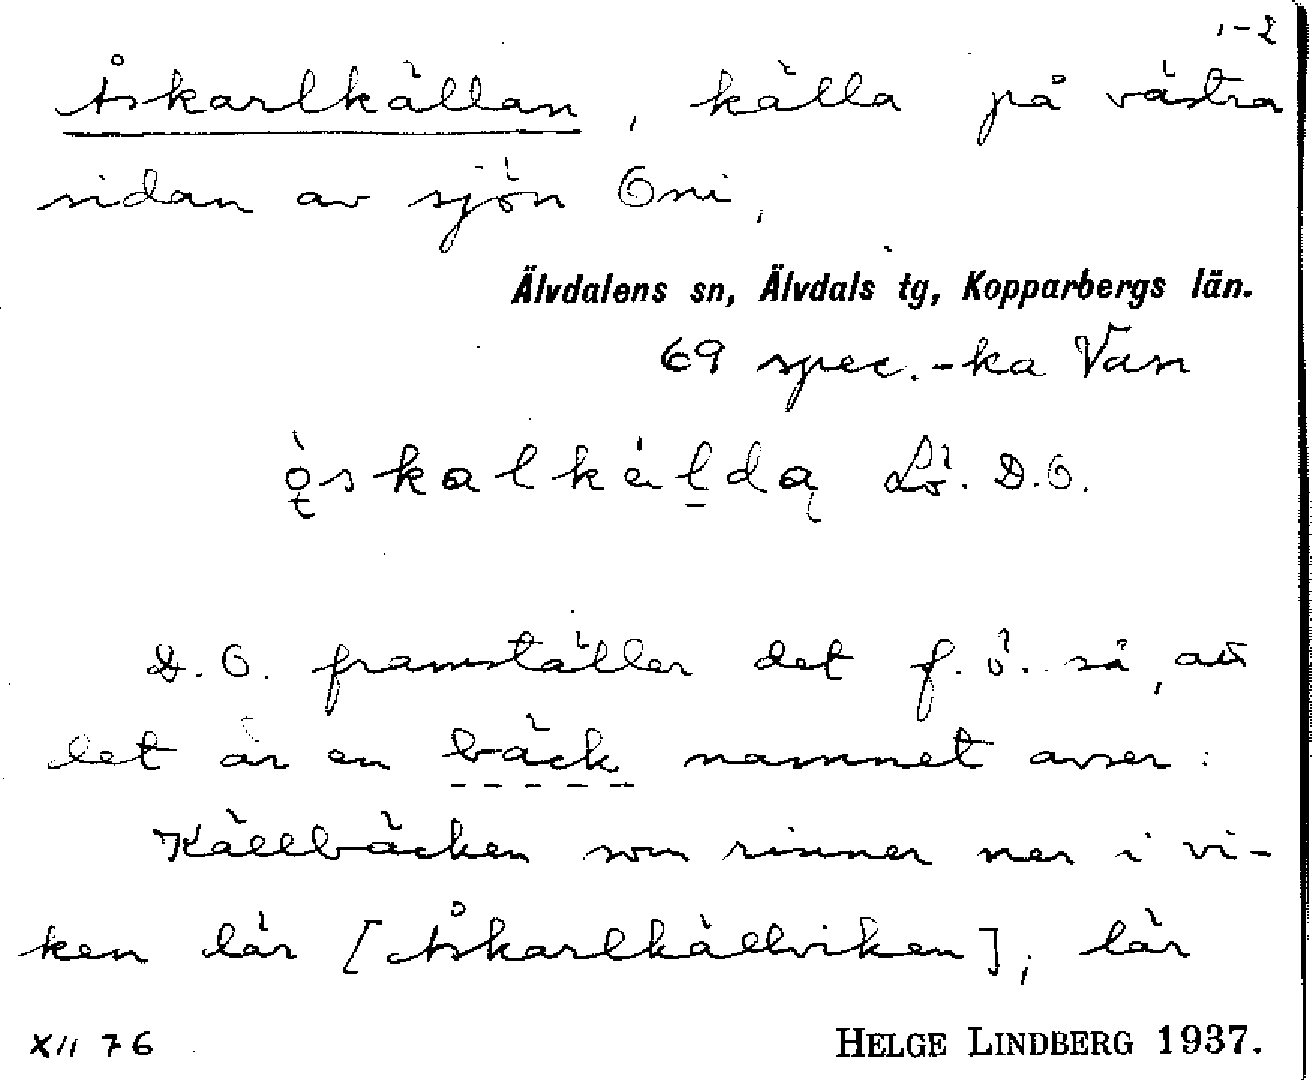 1-2
Åskarlkällan, källa på västra
sidan av sjön Osni.
Älvdalens sn, Älvdals tg, Kopparbergs län.
69 spec.-ka Van
D.O.
D.O. framställer det f.ö. så, att
det är en bäck namnet avser:
Källbäcken som rinner ner i vi-
ken där [Åskarlkällviken], där
XII 76
HELGE LINDBERG 1937.